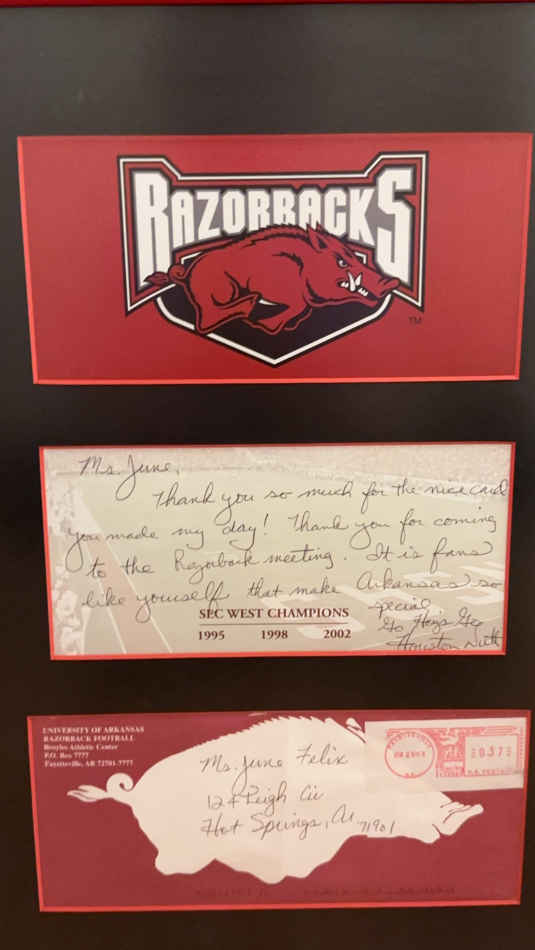 RAZORBACKS
TM
Ms. June,
Thank you so much for the nice card
you made my day! Thank you for coming
to the Razorback meeting. It is fans
like yourself that make Arkansas so
special.
Go Hogs Go
Houston Nutt
SEC WEST CHAMPIONS
1995 1998 2002
UNIVERSITY OF ARKANSAS
RAZORBACK FOOTBALL
Broyles Athletic Center
P.O. Box 7777
Fayetteville, AR 72701-7777
Ms. June Felix
124 Leigh Cir
Hot Springs, Ar 71901